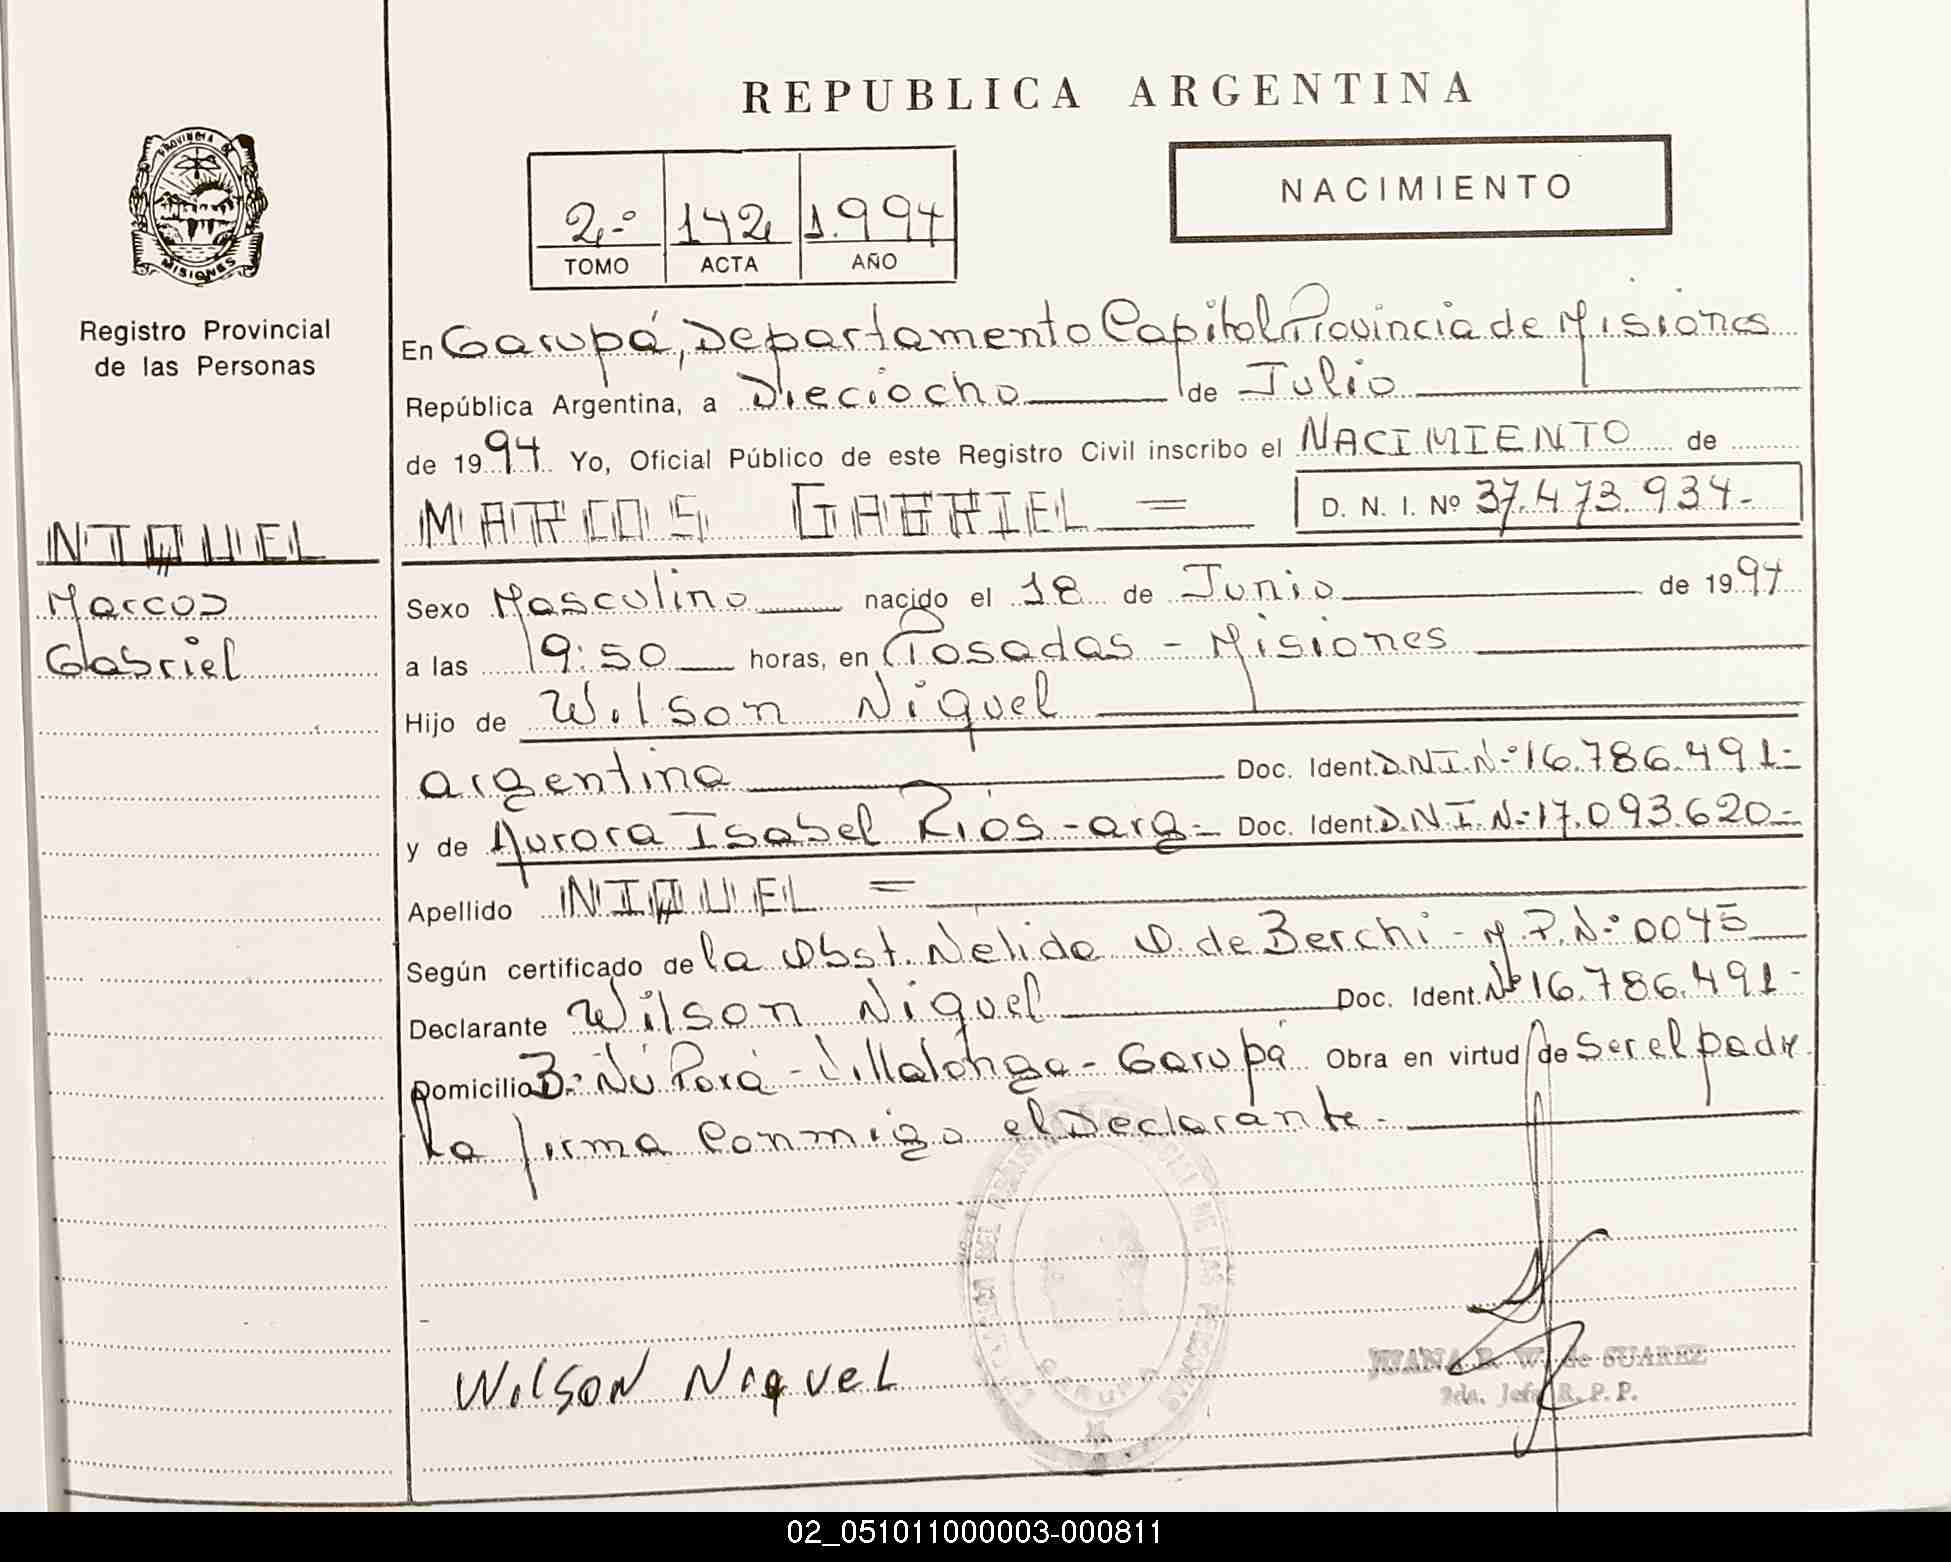 REPUBLICA ARGENTINA
PROVINCIA DE
MISIONES
Registro Provincial
de las Personas
NIQUEL
Marcos
Gabriel
2.º 142 1.994
TOMO ACTA AÑO
NACIMIENTO
En Garupá, Departamento Capital Provincia de Misiones
República Argentina, a Dieciocho de Julio
de 1994 Yo, Oficial Público de este Registro Civil inscribo el NACIMIENTO de
MARCOS GABRIEL = D. N. I. Nº 37.473.934-
Sexo Masculino nacido el 18 de Junio de 1994
a las 19:50 horas, en Posadas - Misiones
Hijo de Wilson Niquel
argentina Doc. Ident. D.N.I.Nº 16.786.491-
y de Aurora Isabel Rios - arg- Doc. Ident. D.N.I.Nº 17.093.620-
Apellido NIQUEL =
Según certificado de la Obst. Nelida O. de Berchi - M.P.Nº 0045
Declarante Wilson Niquel Doc. Ident. Nº 16.786.491-
Domicilio Bº Ñu Porá - Villalonga - Garupá Obra en virtud de Ser el padre
La firma Conmigo el Declarante.-
WILSON NIQUEL
JUANA W. de SUAREZ
2da. Jefe R. P. P.
02_051011000003-000811